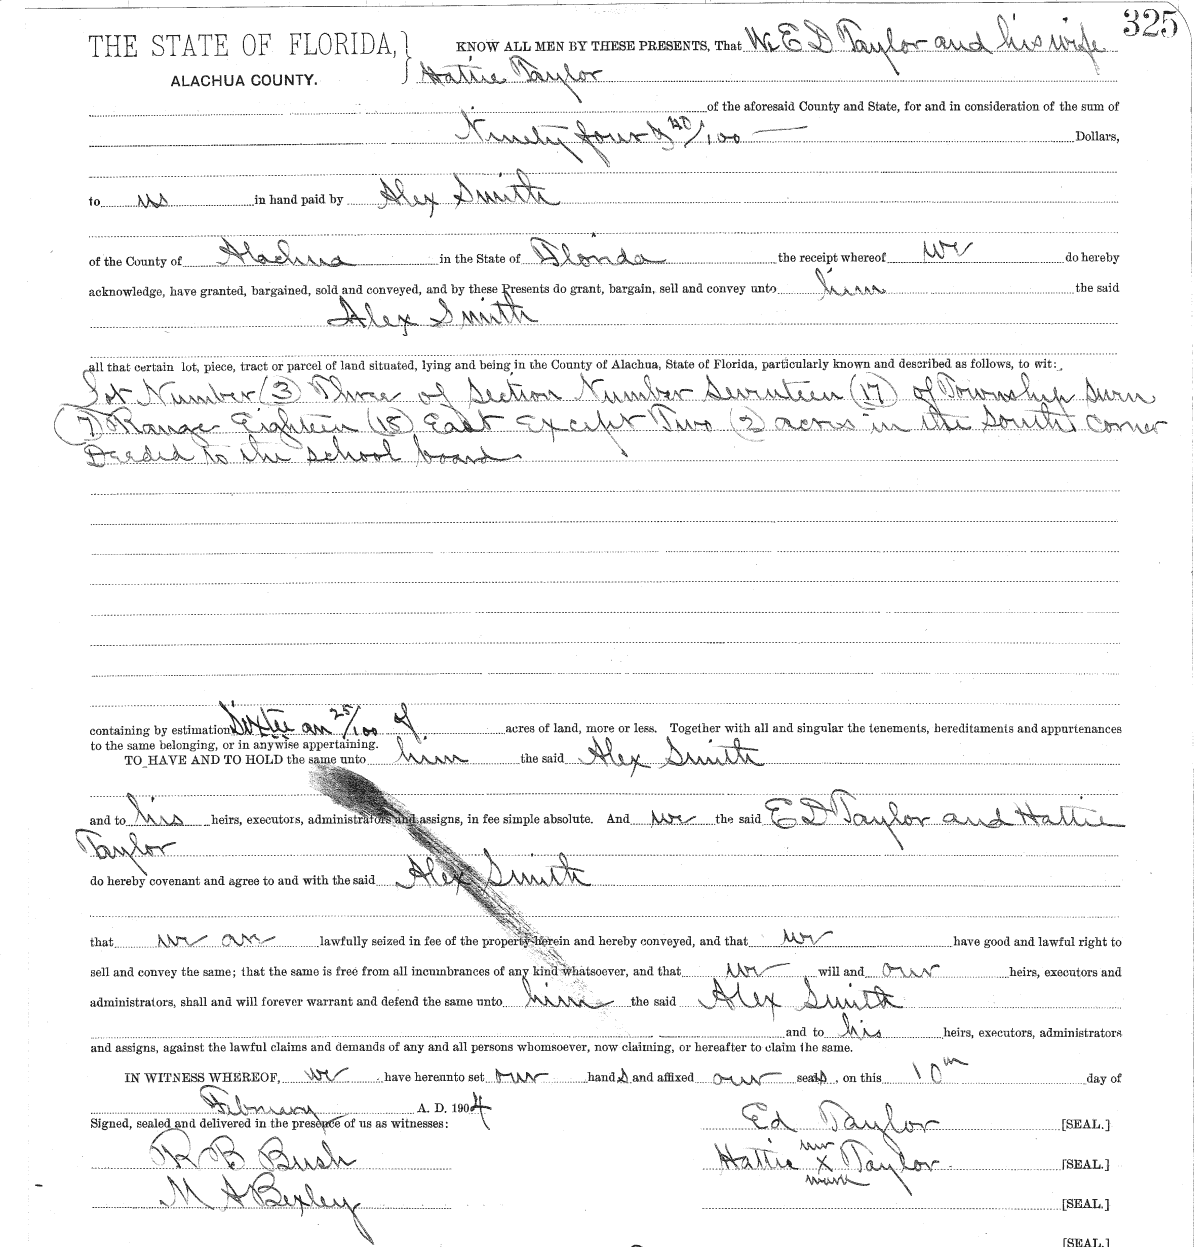 325
THE STATE OF FLORIDA, } KNOW ALL MEN BY THESE PRESENTS, That We E D Taylor and his wife
ALACHUA COUNTY. Hattie Taylor
of the aforesaid County and State, for and in consideration of the sum of
Ninety four & 40/100 Dollars,
to us in hand paid by Alex Smith
of the County of Alachua in the State of Florida the receipt whereof we do hereby
acknowledge, have granted, bargained, sold and conveyed, and by these Presents do grant, bargain, sell and convey unto him the said
Alex Smith
all that certain lot, piece, tract or parcel of land situated, lying and being in the County of Alachua, State of Florida, particularly known and described as follows, to wit:
Lot Number (3) Three of Section Number Seventeen (17) of Township Seven
(7) Range Eighteen (18) East Except Two (2) acres in the South Corner
Deeded to the school board.
containing by estimation 25/100 of acres of land, more or less. Together with all and singular the tenements, hereditaments and appurtenances
to the same belonging, or in anywise appertaining.
TO HAVE AND TO HOLD the same unto him the said Alex Smith
and to his heirs, executors, administrators and assigns, in fee simple absolute. And we the said E D Taylor and Hattie
Taylor
do hereby covenant and agree to and with the said Alex Smith
that we are lawfully seized in fee of the property herein and hereby conveyed, and that we have good and lawful right to
sell and convey the same; that the same is free from all incumbrances of any kind whatsoever, and that we will and our heirs, executors and
administrators, shall and will forever warrant and defend the same unto him the said Alex Smith
and to his heirs, executors, administrators
and assigns, against the lawful claims and demands of any and all persons whomsoever, now claiming, or hereafter to claim the same.
IN WITNESS WHEREOF, we have hereunto set our hands and affixed our seals, on this 10th day of
February A. D. 1904
Signed, sealed and delivered in the presence of us as witnesses: Ed Taylor [SEAL.]
R B Bush Hattie her x mark Taylor [SEAL.]
M A Bexley [SEAL.]
[SEAL.]